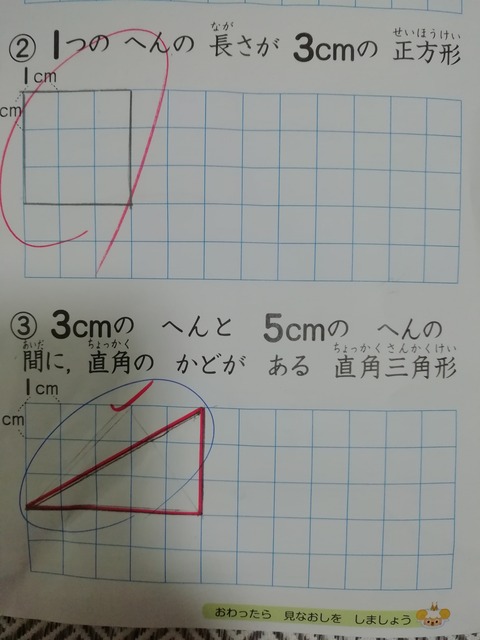 ② 1つの へんの 長さが 3cmの 正方形
なが
せいほうけい
1cm
cm
③ 3cmの へんと 5cmの へんの
間に, 直角の かどが ある 直角三角形
あいだ
ちょっかく
ちょっかくさんかくけい
1cm
cm
おわったら 見なおしを しましょう